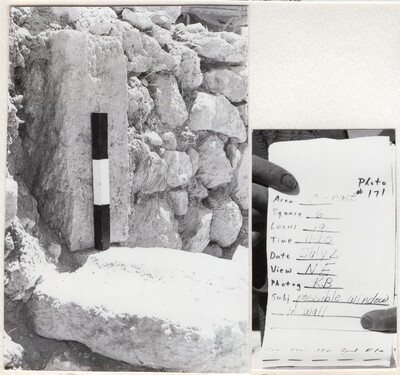 Photo
# 171
Area
Square 6
Locus 19
Time
Date July 2
View NE
Photog KB
Subj possible window
in wall